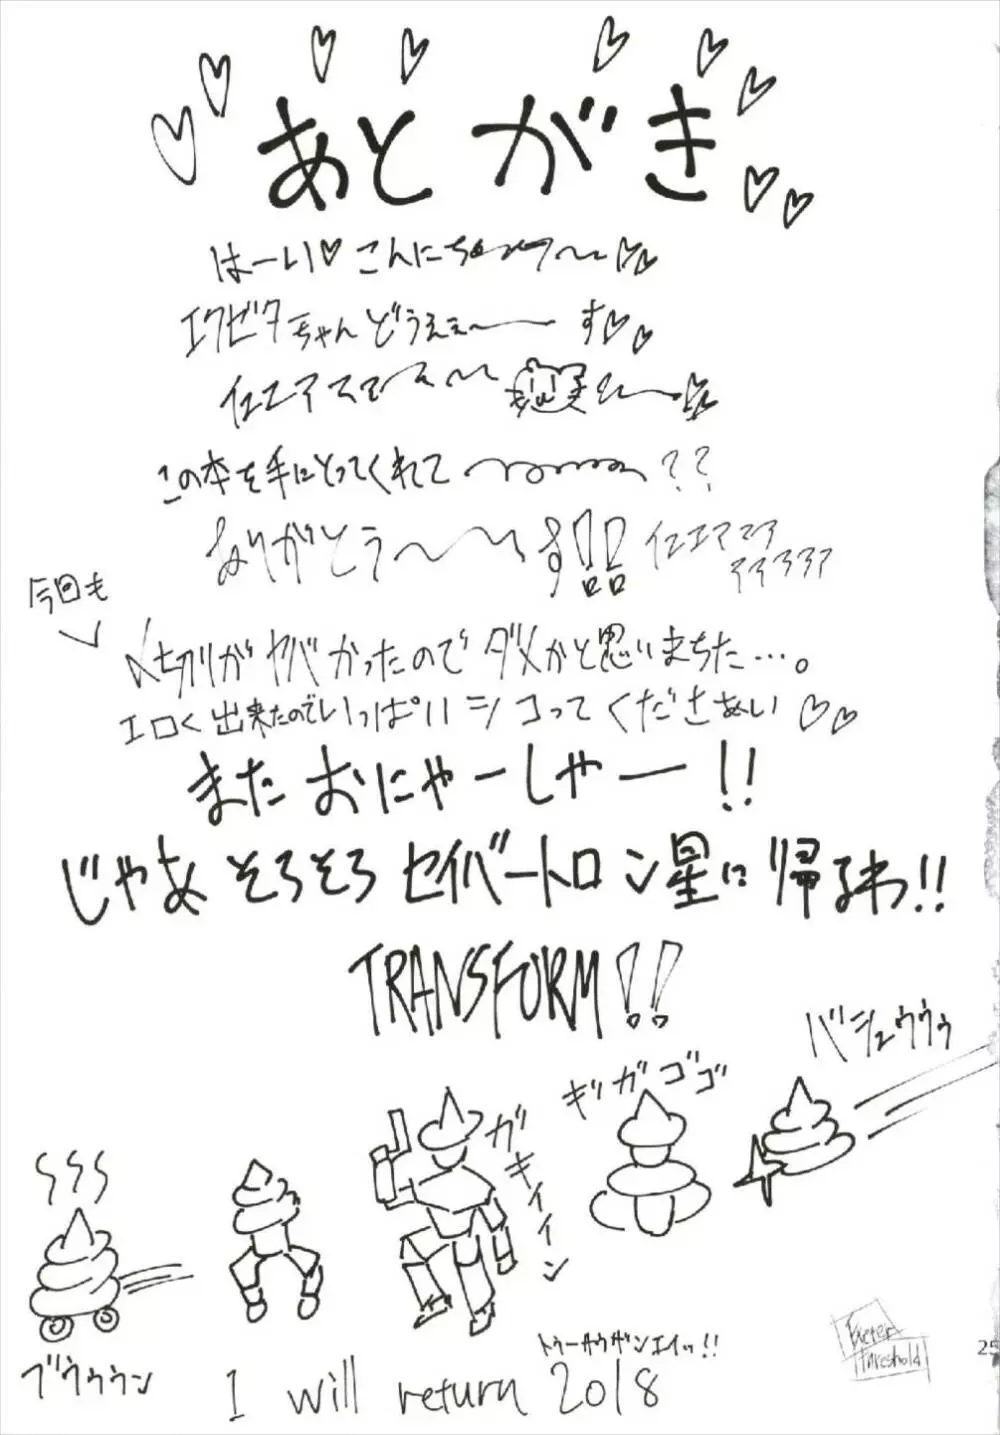 あとがき
はーい♡こんにち
エクゼタちゃんどうぇぇ〜ーす♡♡
イェエア
この本を手にとってくれて〜??
ありがとう〜〜す!!
イェエア
今回も
〆切りがヤバかったのでダメかと思いまちた…。
エロく出来たのでいっぱいシコってくださぁい♡♡
またおにゃーしゃー!!
じゃあそろそろセイバートロン星に帰るわ!!
TRANSFORM!!
バシュゥゥゥ
ギゴガゴゴ
ガキィィィン
ブゥゥゥン
トゥーサウザンエイッ!!
I will return 2018
Exeter
Threshold
25